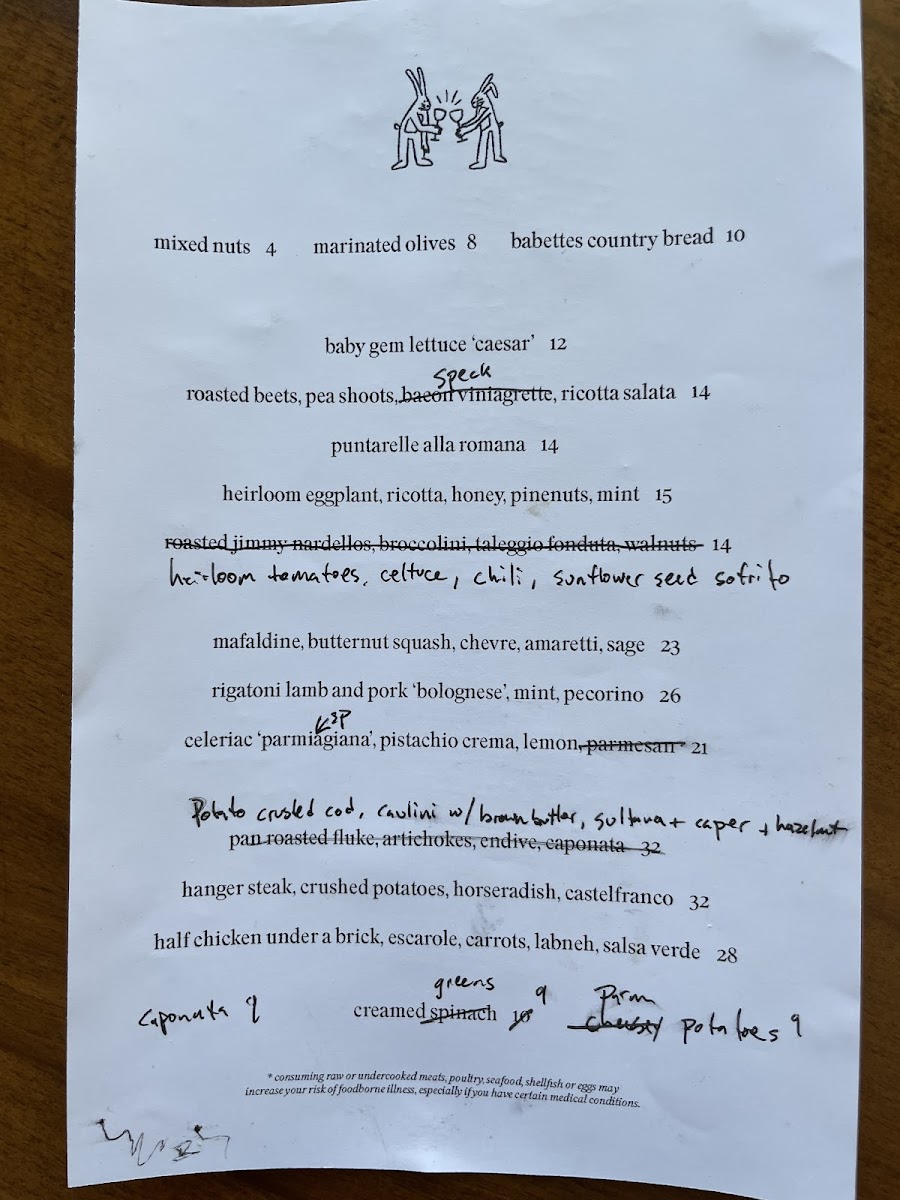 mixed nuts 4 marinated olives 8 babettes country bread 10
baby gem lettuce ‘caesar’ 12
speck
roasted beets, pea shoots, bacon viniagrette, ricotta salata 14
puntarelle alla romana 14
heirloom eggplant, ricotta, honey, pinenuts, mint 15
roasted jimmy nardellos, broccolini, taleggio fonduta, walnuts 14
heirloom tomatoes, celtuce, chili, sunflower seed sofrito
mafaldine, butternut squash, chevre, amaretti, sage 23
rigatoni lamb and pork ‘bolognese’, mint, pecorino 26
celeriac ‘parmiagiana’, pistachio crema, lemon, parmesan 21
Potato crusted cod, caulini w/ brown butter, sultana + caper + hazelnut
pan roasted fluke, artichokes, endive, caponata 32
hanger steak, crushed potatoes, horseradish, castelfranco 32
half chicken under a brick, escarole, carrots, labneh, salsa verde 28
greens 9 Parm
caponata 9 creamed spinach 10 cheesy potatoes 9
* consuming raw or undercooked meats, poultry, seafood, shellfish or eggs may
increase your risk of foodborne illness, especially if you have certain medical conditions.